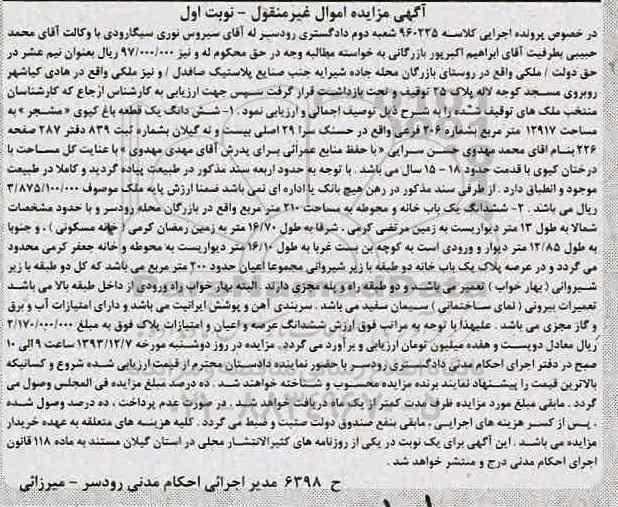 آگهی مزایده اموال غیرمنقول - نوبت اول
در خصوص پرونده اجرایی کلاسه ۹۶۰۲۲۵ شعبه دوم دادگستری رودسر له آقای سیروس نوری سیگارودی با وکالت آقای محمد
حبیبی بطرفیت آقای ابراهیم اکبرپور بازرگانی به خواسته مطالبه وجه در حق محکوم له و نیز ۹۷/۰۰۰/۰۰۰ ریال بعنوان نیم عشر در
حق دولت / ملکی واقع در روستای بازرگان محله جاده شیرایه جنب صنایع پلاستیک صافدل / و نیز ملکی واقع در هادی کیاشهر
روبروی مسجد کوچه لاله پلاک ۲۵ توقیف و تحت بازداشت قرار گرفت سپس جهت ارزیابی به کارشناس ارجاع که کارشناسان
منتخب ملک های توقیف شده را به شرح ذیل توصیف اجمالی و ارزیابی نمود . ۱- شش دانگ یک قطعه باغ کیوی « مشجر » به
مساحت ۱۲۹۱۷ متر مربع بشماره ۲۰۶ فرعی واقع در حسنک سرا ۲۹ اصلی بیست و نه گیلان بشماره ثبت ۸۳۹ دفتر ۲۸۷ صفحه
۲۲۶ بنام اقای محمد مهدوی حسن سرایی « با حفظ منابع عمرآئی برای پدرش آقای مهدی مهدوی » با عنایت کل مساحت با
درختان کیوی با قدمت حدود ۱۸ - ۱۵ سال می باشد . با توجه به حدود اربعه سند مذکور در طبیعت پیاده گردید و کاملا در طبیعت
موجود و انطباق دارد . از طرفی سند مذکور در رهن هیچ بانک یا اداره ای نمی باشد ضمنا ارزش پایه ملک موصوف ۳/۸۷۵/۱۰۰/۰۰۰
ریال می باشد . ۲- ششدانگ یک باب خانه و محوطه به مساحت ۲۱۰ متر مربع واقع در بازرگان محله رودسر و با حدود مشخصات
شمالا به طول ۱۳ متر دیواریست به زمین مرتضی کرمی . شرقا به طول ۱۶/۷۰ متر به زمین رمضان کرمی ( خانه مسکونی ) . و جنوبا
به طول ۱۲/۸۵ متر دیوار و ورودی است به کوچه بن بست غربا به طول ۱۶/۱۰ متر دیواریست به محوطه و خانه جعفر کرمی محدود
می گردد و در عرصه پلاک یک باب خانه دو طبقه با زیر شیروانی مجموعا اعیان حدود ۲۰۰ متر مربع می باشد که کل دو طبقه با زیر
شیروانی ( بهار خواب ) تعمیر می باشد و دو طبقه راه و پله مجزی دارند . البته بهار خواب راه ورودی از داخل طبقه بالا می باشد
تعمیرات بیرونی ( نمای ساختمانی ) سیمان سفید می باشد . سربندی آهن و پوشش ایرانیت می باشد و دارای امتیازات آب و برق
و گاز مجزی می باشد . علیهذا با توجه به مراتب فوق ارزش ششدانگ عرصه و اعیان و امتیازات پلاک فوق به مبلغ ۲/۱۷۰/۰۰۰/۰۰۰
ریال معادل دویست و هفده میلیون تومان ارزیابی و برآورد می گردد . مزایده در روز دوشنبه مورخه ۱۳۹۳/۱۲/۷ ساعت ۹ الی ۱۰
صبح در دفتر اجرای احکام مدنی دادگستری رودسر با حضور نماینده دادستان محترم از قیمت ارزیابی شده شروع و کسانیکه
بالاترین قیمت را پیشنهاد نمایند برنده مزایده محسوب و شناخته خواهند شد . ده درصد مبلغ مزایده فی المجلس وصول می
گردد . مابقی مبلغ مورد مزایده ظرف مدت کمتر از یک ماه دریافت خواهد شد . در صورت عدم پرداخت ، ده درصد وصول شده
، پس از کسر هزینه های اجرایی ، مابقی بنفع صندوق دولت صثبت و ضبط می گردد . کلیه هزینه های متعلقه به عهده خریدار
مزایده می باشد . این آگهی برای یک نوبت در یکی از روزنامه های کثیرالانتشار محلی در استان گیلان مستند به ماده ۱۱۸ قانون
اجرای احکام مدنی درج و منتشر خواهد شد .
ح ۶۳۹۸ مدیر اجرائی احکام مدنی رودسر - میرزائی